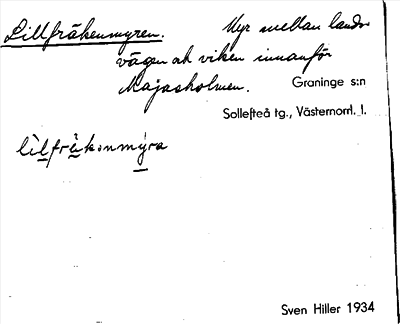 Lillfräkenmyren. Myr mellan lands-
vägen och viken innanför
Majasholmen. Graninge s:n
Sollefteå tg., Västernorrl. l.
lìlfrä̀kənmýra
Sven Hiller 1934